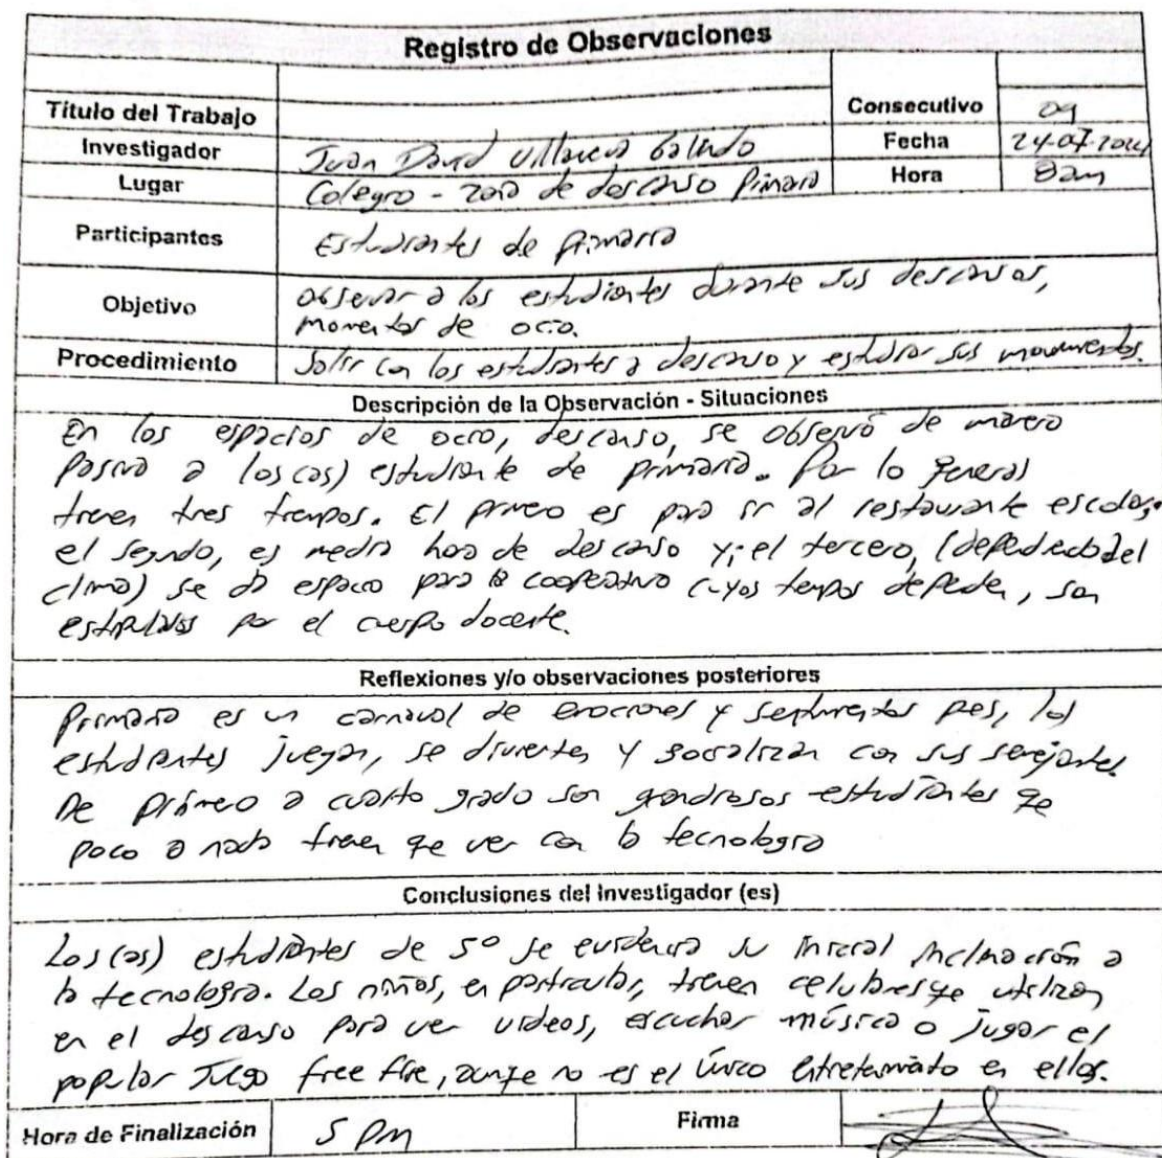 Registro de Observaciones
Título del Trabajo
Consecutivo 09
Investigador Juan David Villareal Galindo Fecha 24-07-2024
Lugar Colegio - zona de descanso Primaria Hora 8am
Participantes Estudiantes de primaria
Objetivo observar a los estudiantes durante sus descansos,
momentos de ocio.
Procedimiento Salir con los estudiantes a descanso y estudiar sus movimientos.
Descripción de la Observación - Situaciones
En los espacios de ocio, descanso, se observó de manera
pasiva a los(as) estudiante de primaria. Por lo general
tienen tres tiempos. El primero es para ir al restaurante escolar,
el segundo, es media hora de descanso y; el tercero, (dependiendo del
clima) se da espacio para la cooperativa cuyos tiempos dependen, son
estipulados por el cuerpo docente.
Reflexiones y/o observaciones posteriores
Primaria es un carnaval de emociones y sentimientos pues, los
estudiantes juegan, se divierten y socializan con sus semejantes.
De primero a cuarto grado son grandiosos estudiantes que
poco o nada tienen que ver con la tecnología
Conclusiones del investigador (es)
Los(as) estudiantes de 5° se evidencia su inicial inclinación a
la tecnología. Los niños, en particular, tienen celulares que utilizan
en el descanso para ver videos, escuchar música o jugar el
popular juego free fire, aunque no es el único entretenimiento en ellos.
Hora de Finalización 5 pm Firma